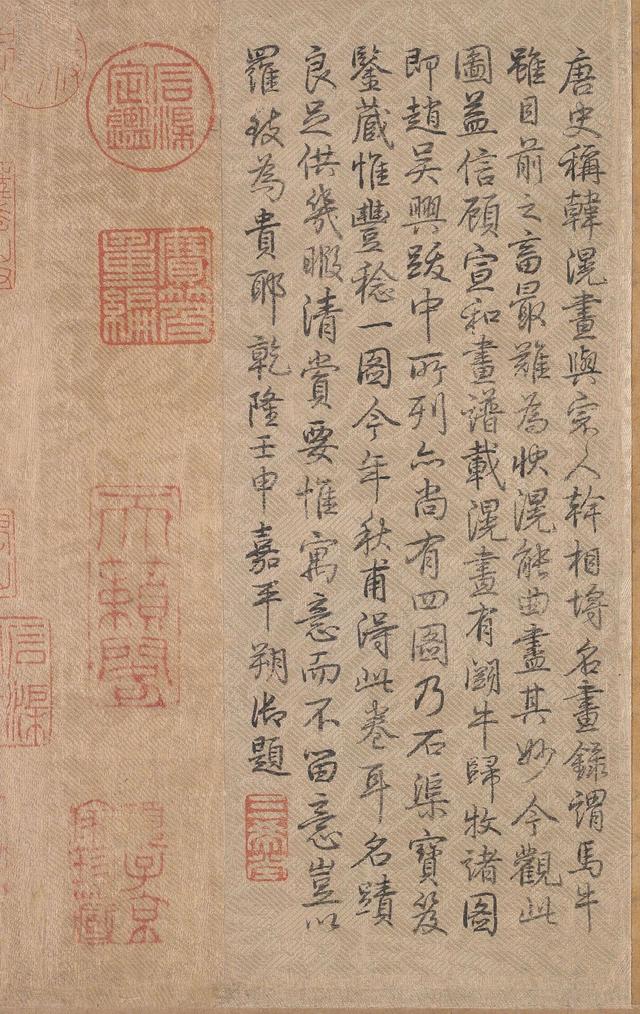 唐史稱韓滉畫與宗人幹相埒名畫錄謂馬牛
雖目前之畜最難為狀滉能曲盡其妙今觀此
圖益信顧宣和畫譜載滉畫有鬭牛歸牧諸圖
即趙吳興跋中所列亦尚有四圖乃石渠寶笈
鑒藏惟豐稔一圖今年秋甫得此卷耳名蹟
良足供幾暇清賞要惟寓意而不留意豈以
羅致為貴耶乾隆壬申嘉平朔御題
三希堂
石渠定鑑
寶笈重編
天籟閣
項子京家珍藏
石渠